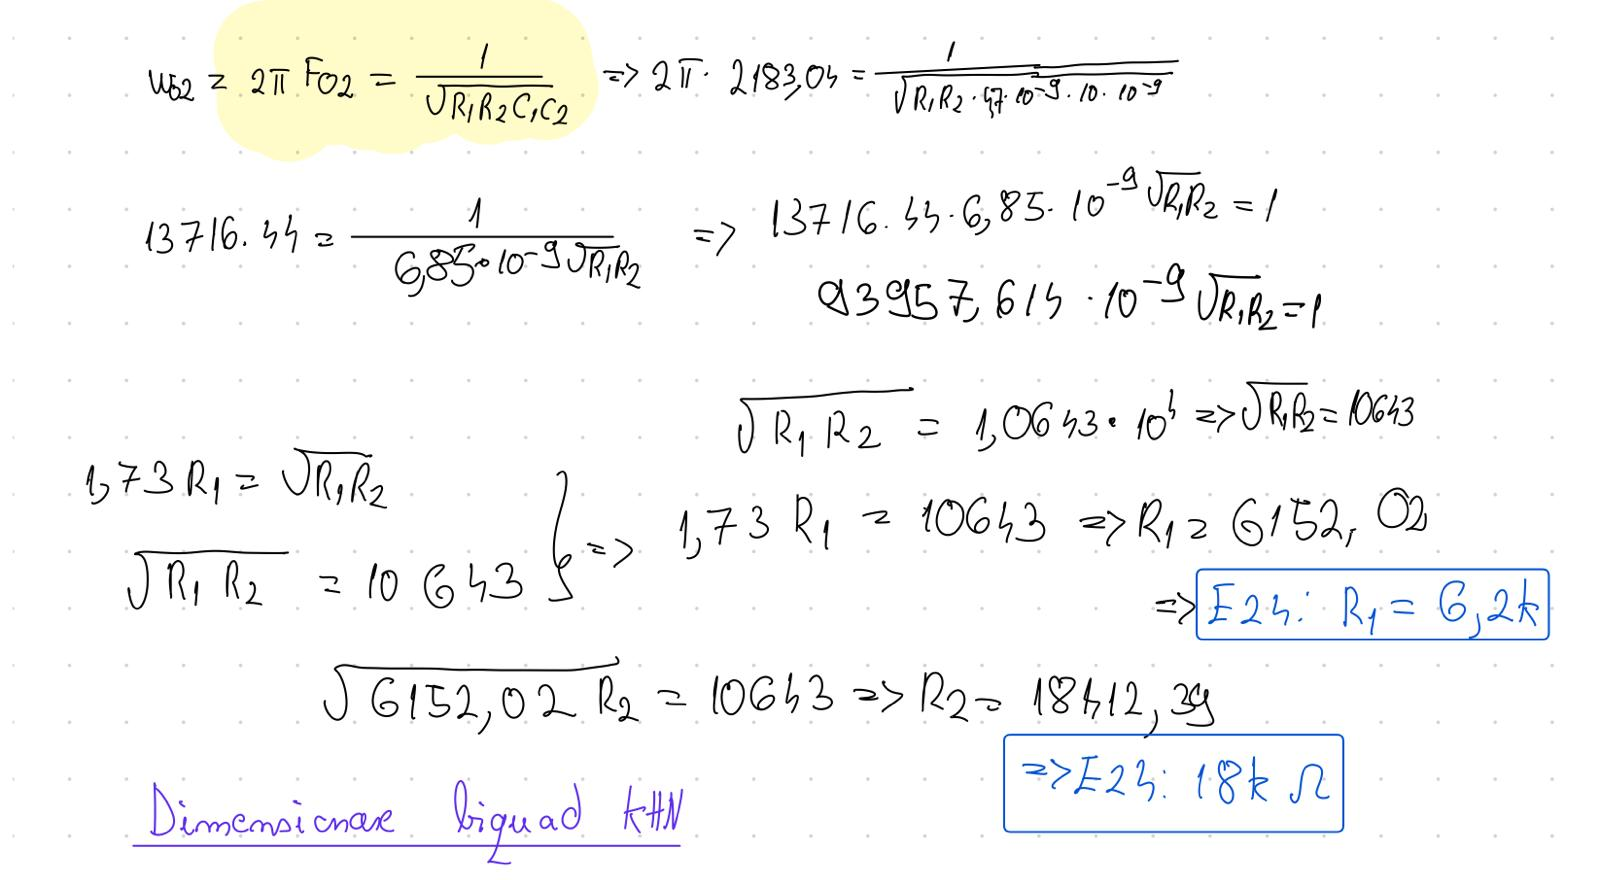 ω02 = 2π F02 = 1/√R1R2C1C2 => 2π · 2183,04 = 1/√R1R2 · 47 · 10^-9 · 10 · 10^-9
13716.44 = 1/6,85·10^-9√R1R2 => 13716.44 · 6,85 · 10^-9 √R1R2 = 1
93957,614 · 10^-9 √R1R2 = 1
√R1 R2 = 1,0643 · 10^4 => √R1R2 = 10643
1,73 R1 = √R1R2
√R1 R2 = 10643 } => 1,73 R1 = 10643 => R1 = 6152,02
=> E24: R1 = 6,2k
√6152,02 R2 = 10643 => R2 = 18412,39
=> E24: 18k Ω
Dimensionare biquad KHN